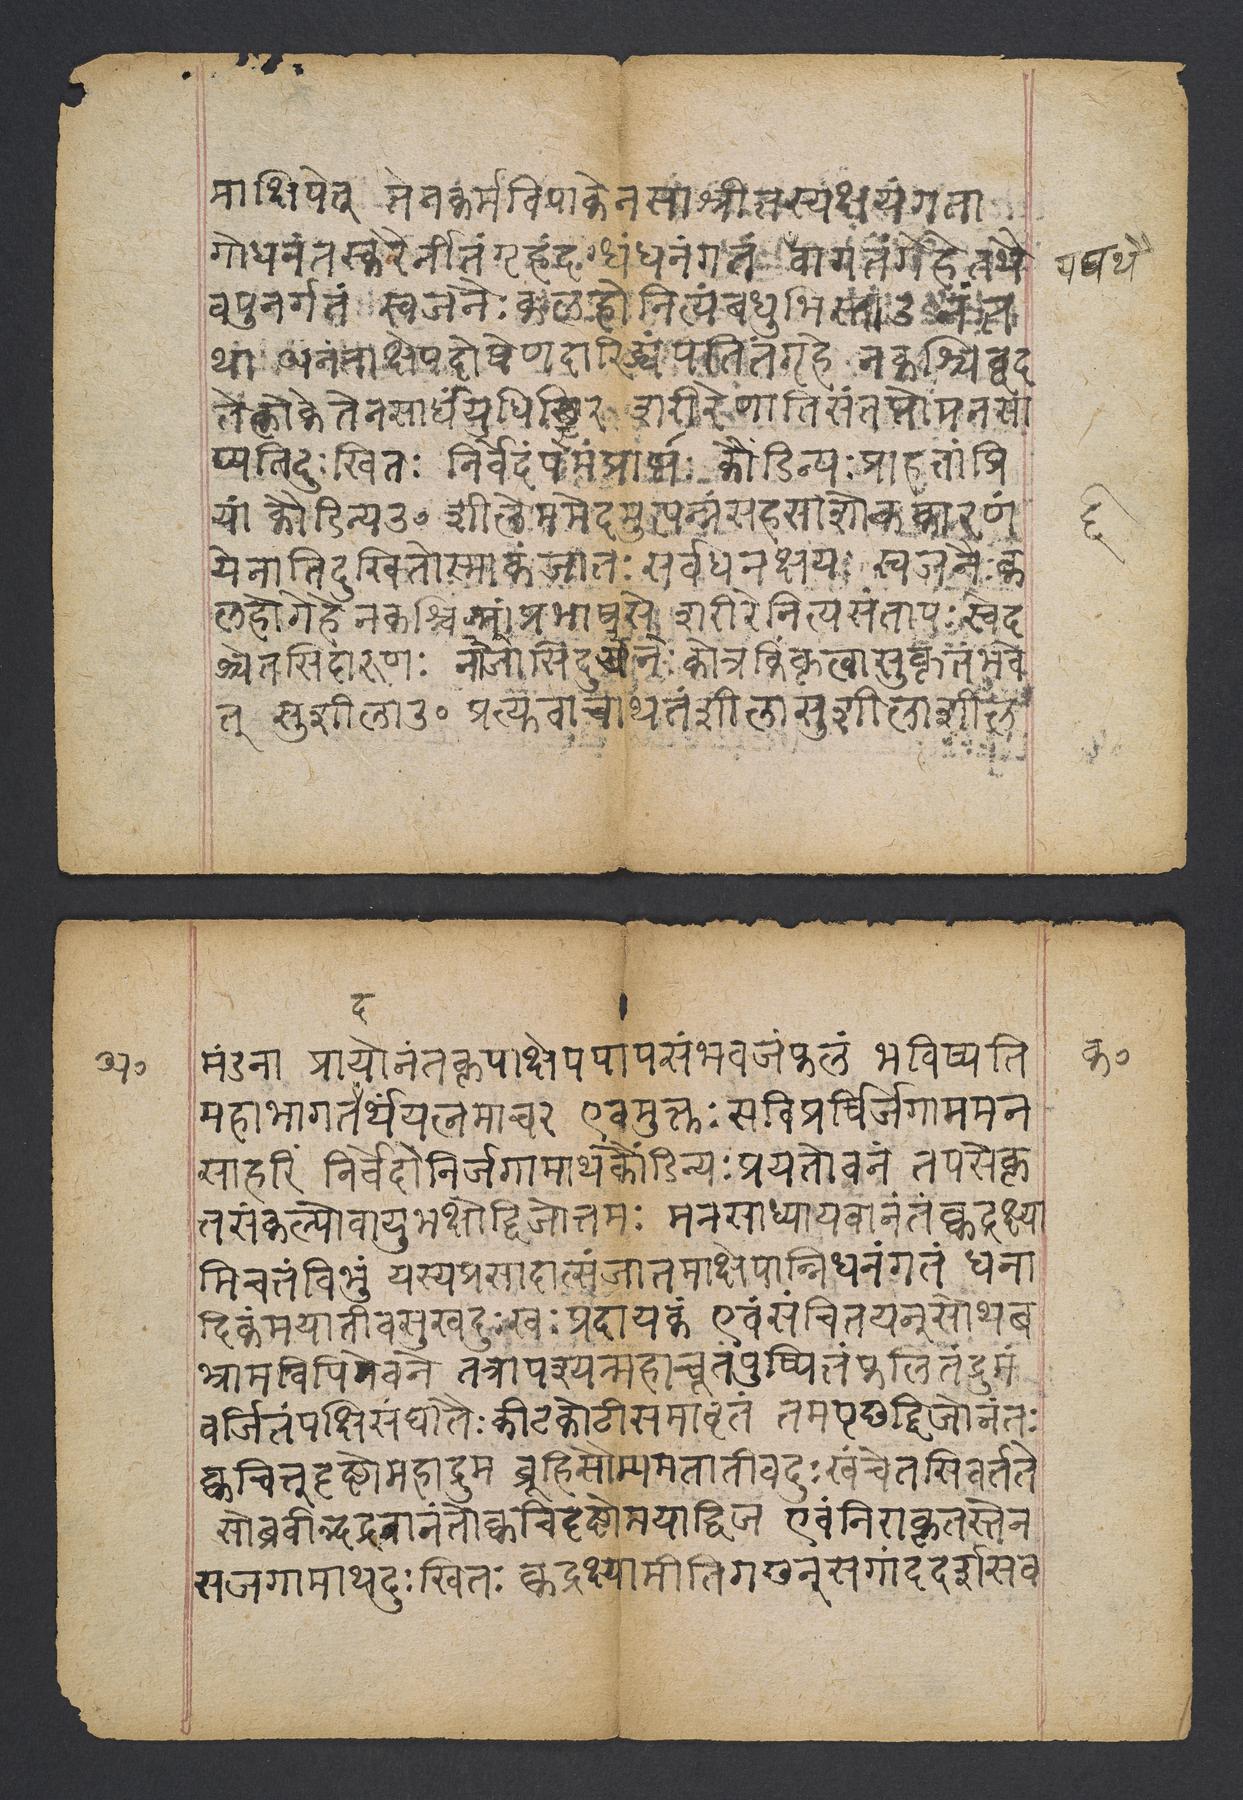 माक्षिपेत् तेनकर्मविपाकेनसाश्रीस्तस्यक्षयंगता
गोधनंतस्करैर्नीतंगृहंदग्धंधनंगतं यागतंगेहेतथै
यद्यथै
वपुनर्गतं स्वजनैःकलहोनित्यंबधुभि
था अनंताक्षेपदोषेणदारिद्र्यंपतितंगृहे नकश्चिद्वद
तेलोकेतेनसार्धंयुधिष्ठिर शरीरेणातिसंतप्तोमनसा
प्यतिदुःखितः निर्वेदंपरमंप्राप्तः कौंडिन्यःप्राहतांप्रि
यां कौंडिन्यउ॰ शीलेममेदमुत्पन्नंसहसाशोककारणं
६
येनातिदुखितोस्माकंजातः सर्वधनक्षयः स्वजनैःक
लहोगेहे नकश्चिन्मांप्रभाषुसे शरीरेनित्यसंतापःखेद
श्चेतसिदारुणः दुर्नयः कोत्रकिंकृत्वासुकृतंभवे
त् सुशीलाउ॰ प्रत्युवाचाथतंशीलासुशीलाशील
द
अ॰
मंडना प्रायोनंतकृपाक्षेपपापसंभवजंफलं भविष्यति
क॰
महाभागतदर्थंयत्नमाचर एवमुक्तः सविप्रर्षिर्जिगाममन
साहरिं निर्वेदोनिर्जगामाथकौंडिन्यःप्रयतोवनं तपसेकृ
तसंकल्पोवायुभक्षोद्विजोत्तमः मनसाध्यायवानंतंक्वद्रक्ष्या
मिचतंविभुं यस्यप्रसादात्संजातमाक्षेपान्निधनंगतं धना
दिकंमयातीवसुखदुःखःप्रदायकं एवंसंचितयन्सोथब
भ्रामविपिनेवने तत्रापश्यन्महाचूतंपुष्पितंफलितंद्रुमं
वर्जितंपक्षिसंघातैःकीटकोटीसमावृतं तमपृछद्द्विजोनंतः
क्वचित्तुदृष्टोमहाद्रुम ब्रूहिसौम्यमतातीवदुःखंचेतसिवर्तते
सोब्रवीन्द्भद्रवानंतोक्वचिदृष्टोमयाद्विज एवंनिराकृतस्तेन
सजगामाथदुःखितः क्वद्रक्ष्यामीतिगछन्सगांददर्शसव